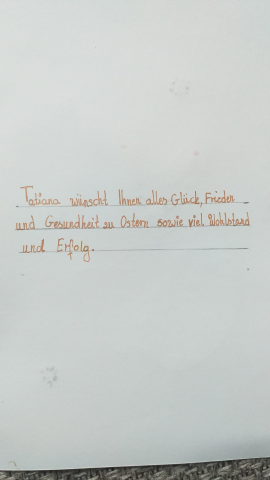 Tatiana wünscht Ihnen alles Glück, Frieden
und Gesundheit zu Ostern sowie viel Wohlstand
und Erfolg.